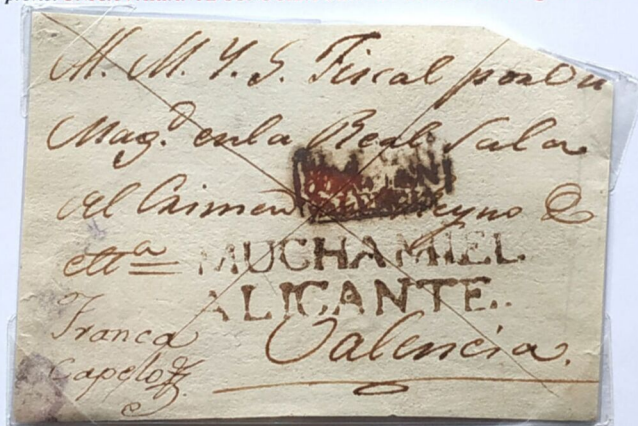 M. M. Y. S. Fiscal por Su
Mag.d en la Real Sala
del Crimen Reyno &
ett.a
MUCHAMIEL
ALICANTE.
Franca
Valencia.